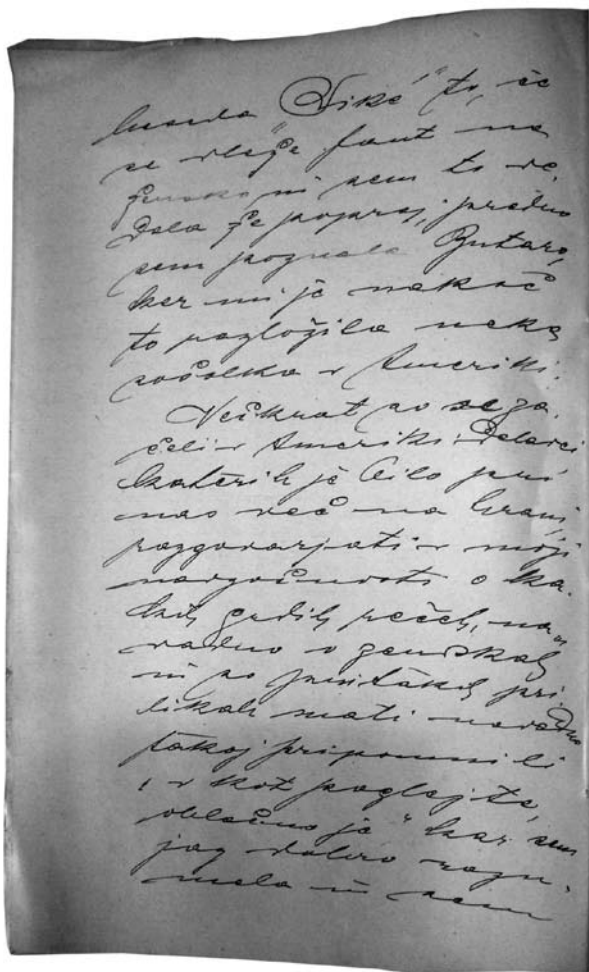 beseda „Fiké" to, če
se vleže fant na
žensko in sem to ve-
dela že poprej, predno
sem poznala Butaro,
ker mi je nekoč
to razložila neka
sošolka v Ameriki.
Večkrat so se za-
čeli v Ameriki delavci
katerih je bilo pri
nas več na hrani,
razgovarjati v moji
navzočnosti o ka-
kih grdih rečeh, na-
vadno o ženskah
in so pri takih pri-
likah mati navadno
takoj pripomnili
„v kot poglejte,
oblačno je" kar sem
jaz dobro razu-
mela in sem